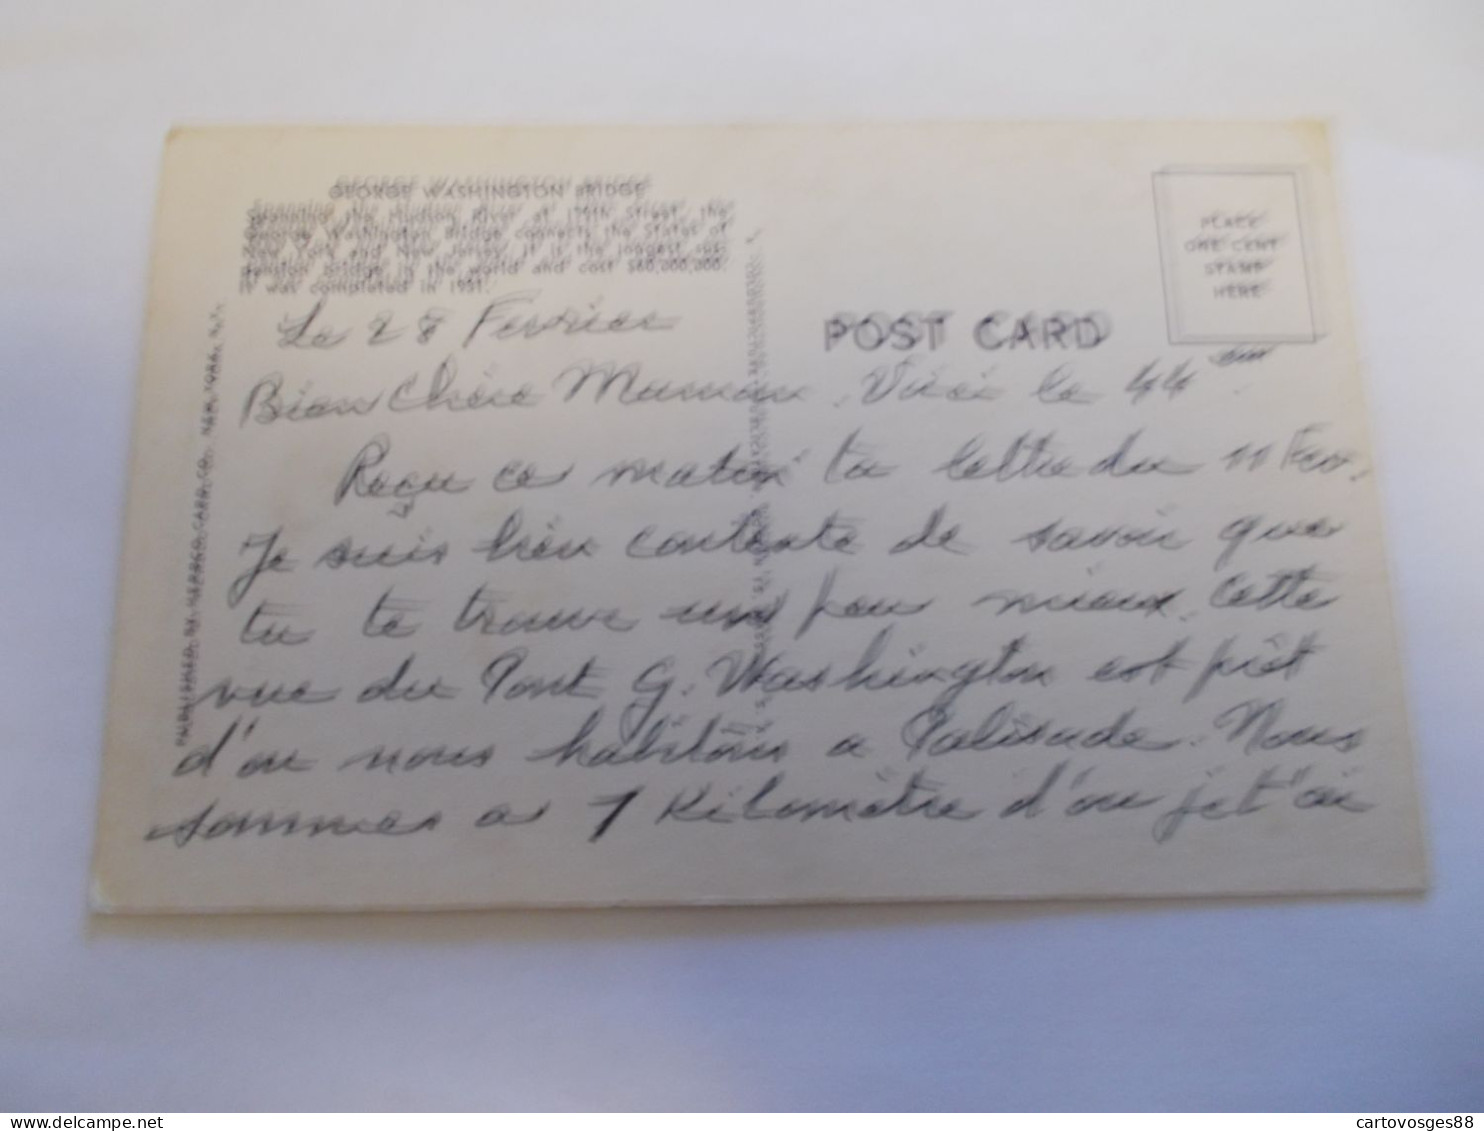 GEORGE WASHINGTON BRIDGE
Spanning the Hudson River at 179th Street, the
George Washington Bridge connects the States of
New York and New Jersey. It is the longest sus-
pension bridge in the world and cost $60,000,000.
It was completed in 1931.
PLACE
ONE CENT
STAMP
HERE
POST CARD
Le 28 Fevrier
Bien Chère Maman, Voici la 44 em
Reçu ce matin ta lettre du 11 Fev.
Je suis bien contente de savoir que
tu te trouve un peu mieux. Cette
vue du Pont G. Washington est prèt
d'ou nous habitons a Palisade. Nous
sommes a 7 Kilomètre d'ou je t'ai
cartovosges88